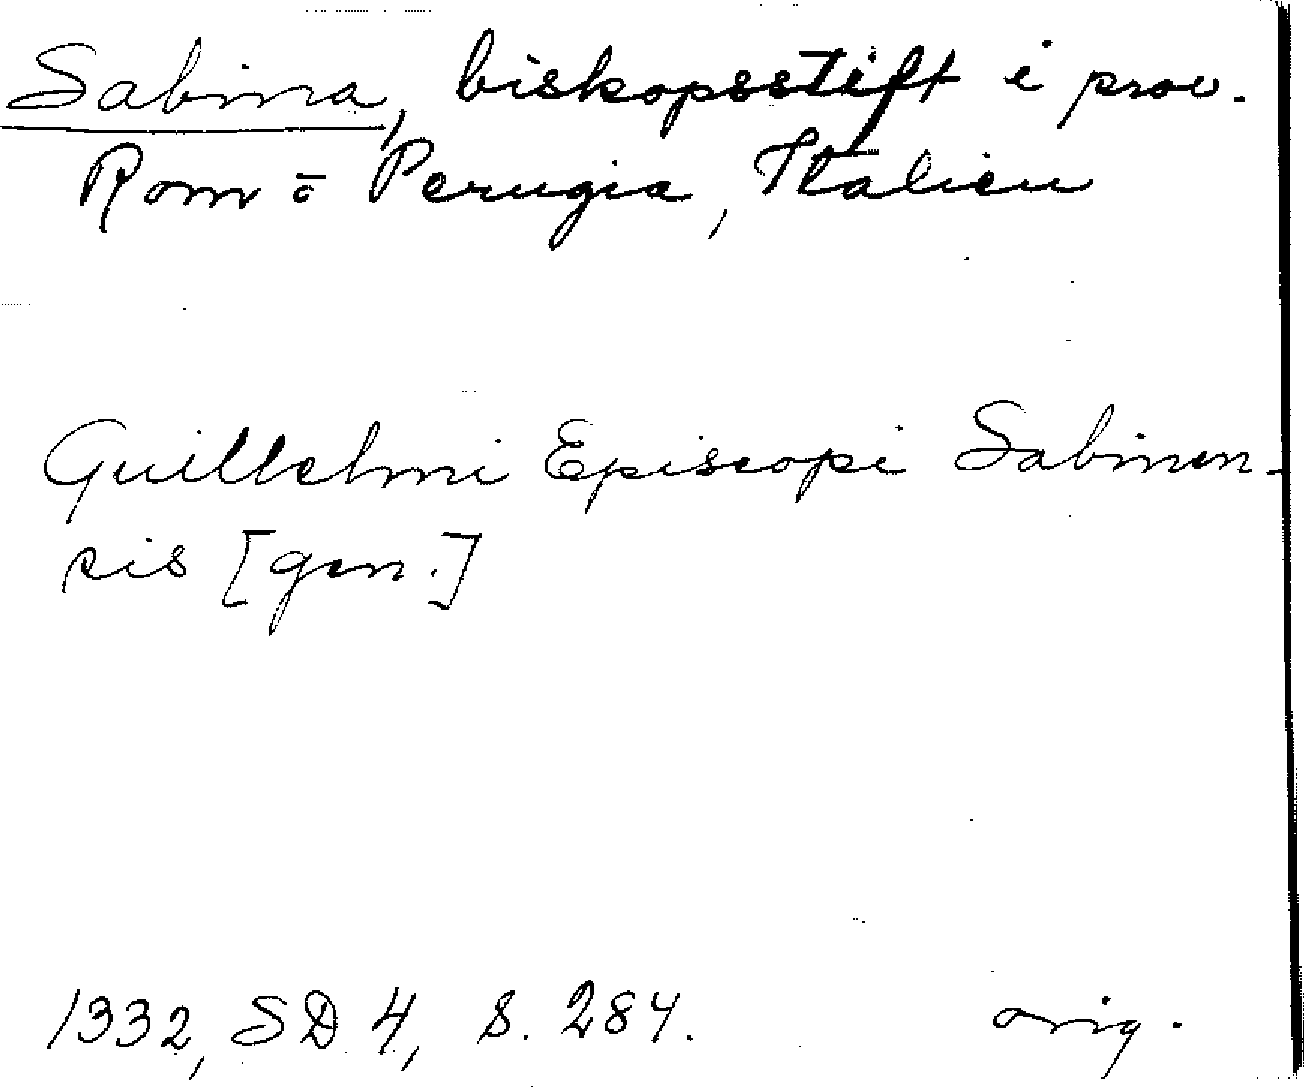 Sabina, biskopsstift i prov.
Rom o Perugia, Italien
Guillelmi Episcopi Sabinen-
sis [gen.]
1332, SD 4, s. 284. orig.